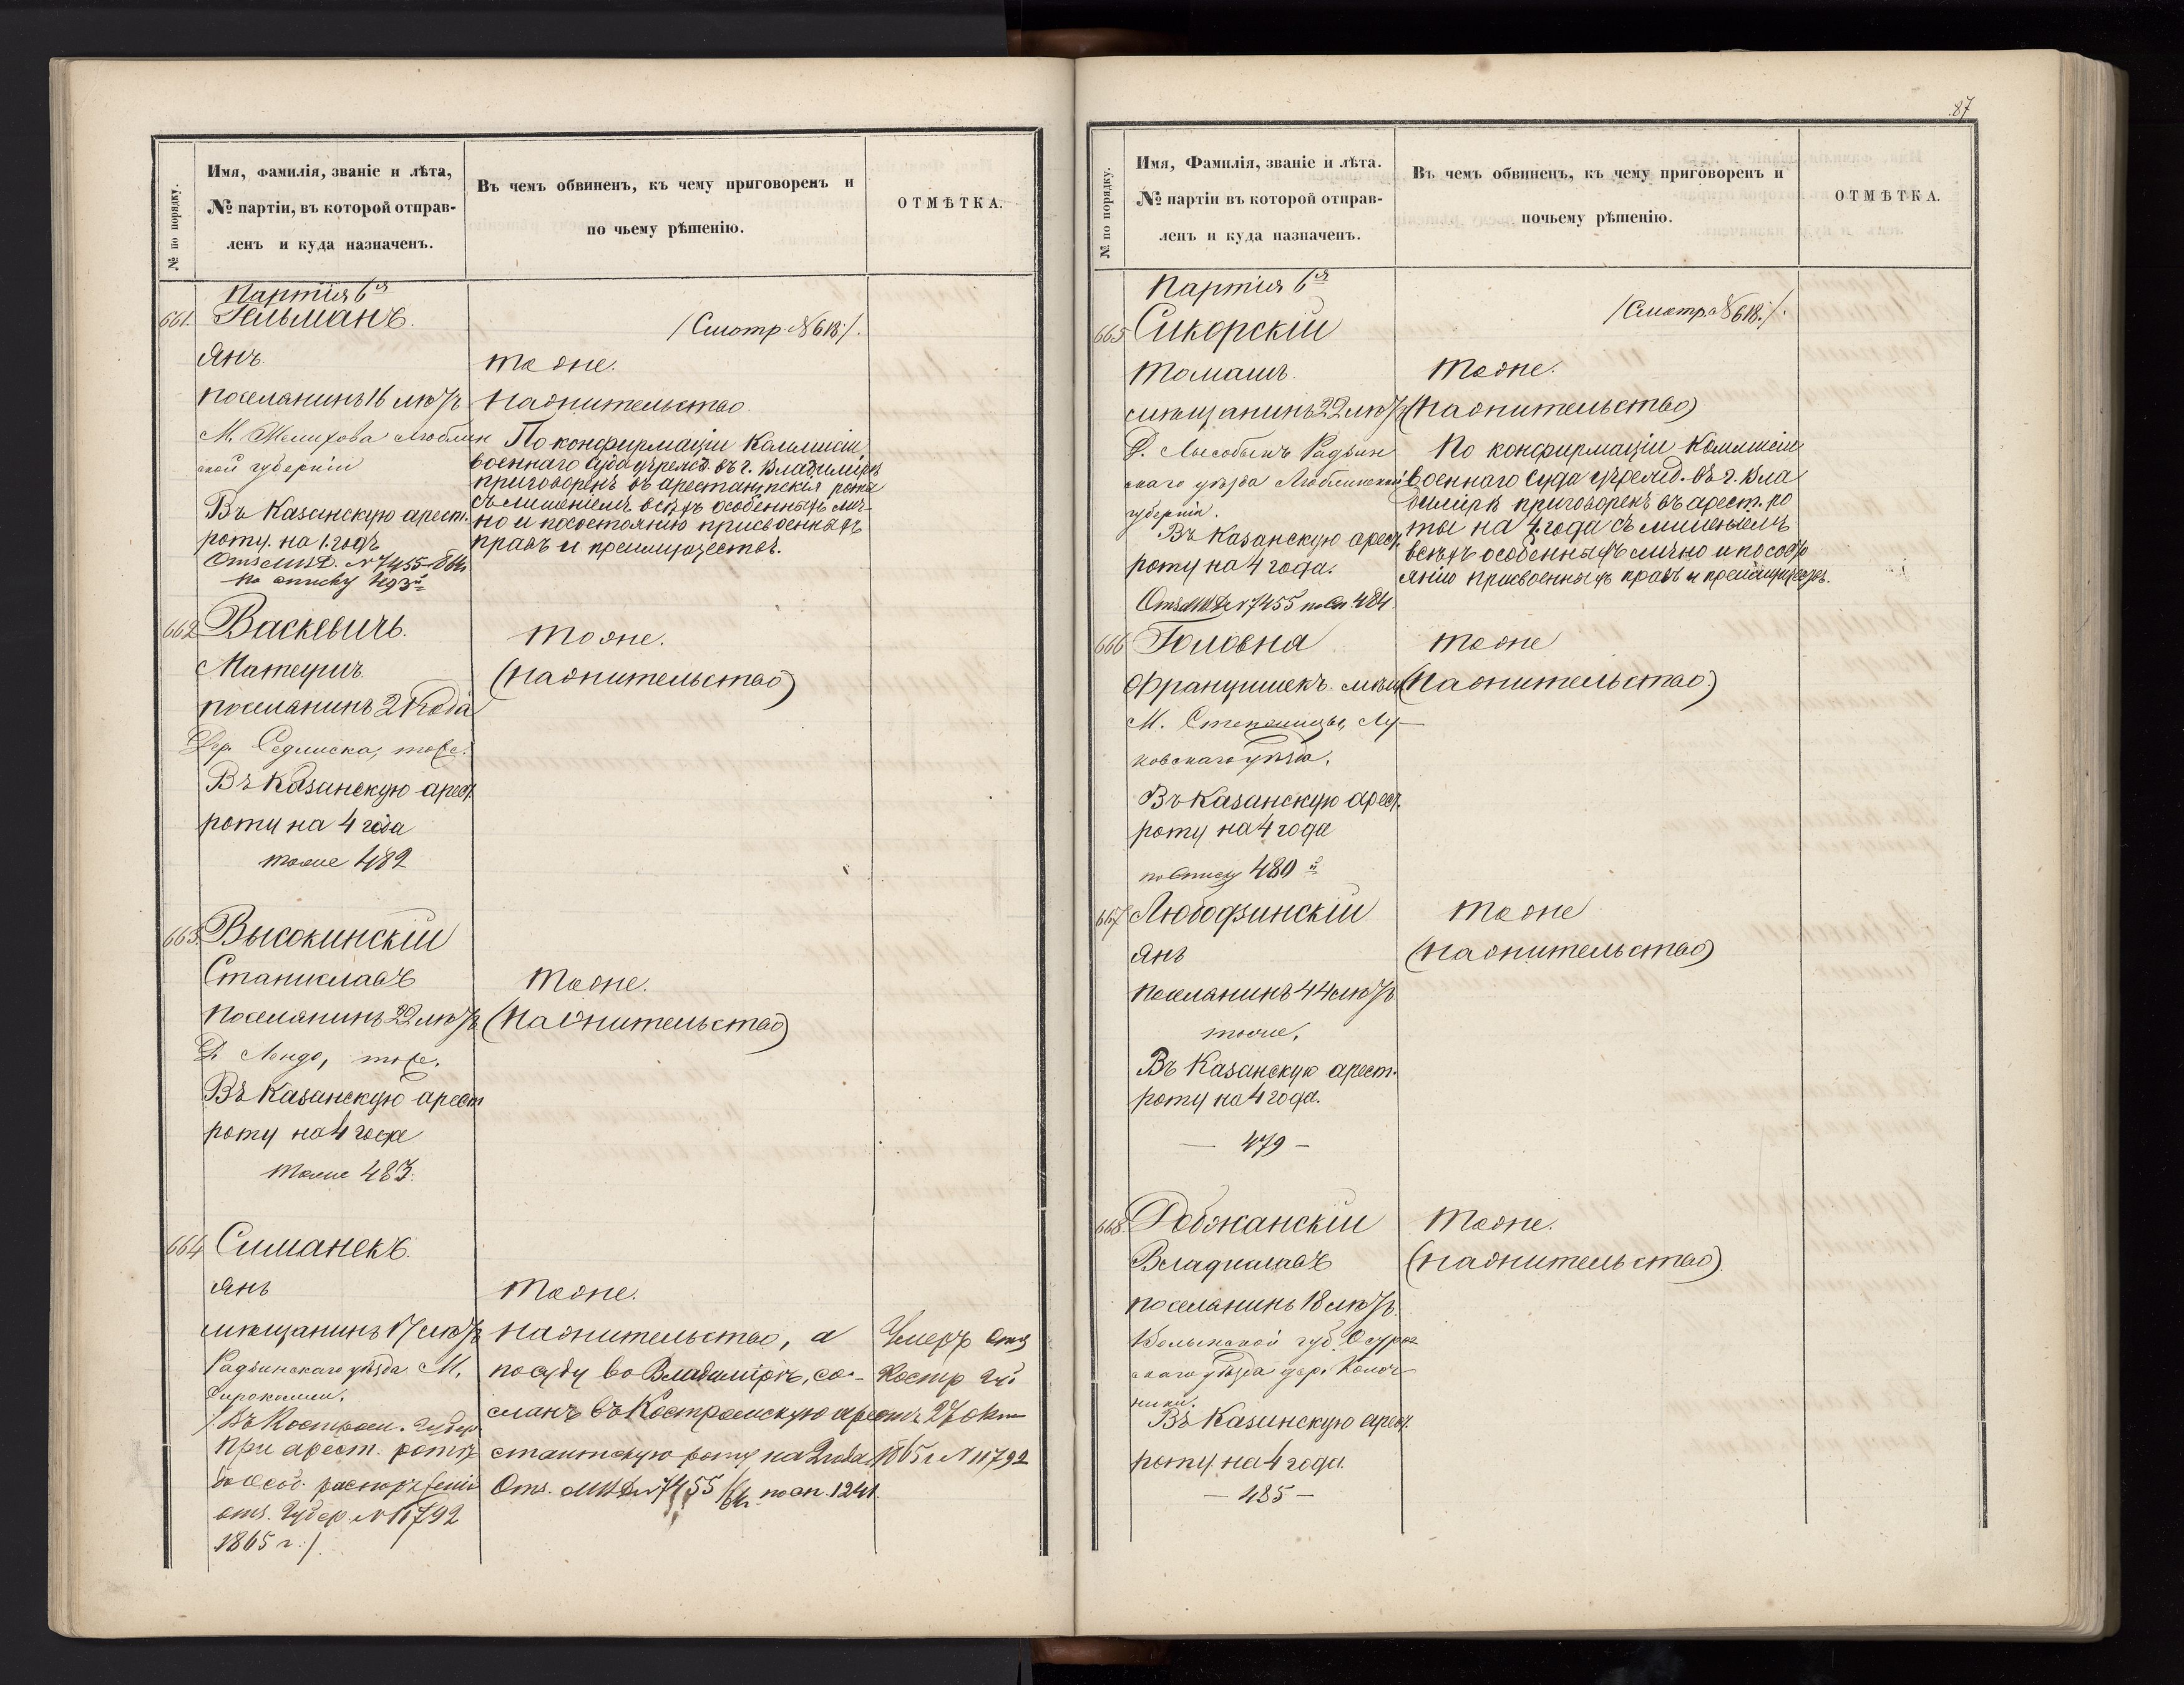 № по порядку.
Имя, фамилія, званіе и лѣта,
№ партіи, въ которой отправ-
ленъ и куда назначенъ.
Въ чемъ обвиненъ, къ чему приговоренъ и
по чьему рѣшенію.
ОТМѢТКА.
Партія 6я
661. Гельманъ.
/Смотр. №618/.
Янъ.
тоже.
поселянинъ 16 лѣтъ
Пособничество.
М. Мелихова Люблин
ской губерніи
По конфирмаціи Коммисіи
военнаго суда учрежд. въ г. Владимірѣ
приговоренъ въ арестантскія роты
съ лишеніемъ всѣхъ особенныхъ лич-
но и посостоянію присвоенныхъ
правъ и преимуществъ.
Въ Казанскую арест.
роту. на 1. годъ
№ 7455
по списку 493й
662 Васкевичъ.
тоже.
Матеушъ
поселянинъ 21 года
Дер. Седлиска, тоже.
Въ Казанскую арест.
роту на 4 года
тоже 482
663. Высокинскій
Станиславъ
тоже.
Поселянинъ 22 лѣтъ
Д. тоже.
Въ Казанскую арест
роту на 4 года
тоже 483.
664 Симанекъ.
Янъ
тоже.
мѣщанинъ 17 лѣтъ
а
Умеръ Отз
Радзинскаго уѣзда М.
по суду во Владимірѣ, со-
Костр Губ
сланъ въ Костромскую аре
отъ 27 окт
/Въ Костром. Губер
При арест. ротѣ
стантскую роту на 2 года
1865 г №11792
до особ. распоряженія
№ 7455 по сп. 1241.
отз. Губер. №11792
1865 г./
87
№ по порядку.
Имя, Фамилія, званіе и лѣта.
№ партіи въ которой отправ-
ленъ и куда назначенъ.
Въ чемъ обвиненъ, къ чему приговоренъ и
почьему рѣшенію.
ОТМѢТКА.
Партія 6я
/Смотр. №618./.
665 Сикорскій
Томашъ.
Тоже.
мѣщанинъ 22 лѣтъ
Д. Радзин
скаго уѣзда Люблинской
губерніи.
По конфирмаціи Коммисіи
военнаго суда учрежд. въ г. Вла
димірѣ приговоренъ въ арест. ро
ты на 4. года съ лишеніемъ
всѣхъ особенныхъ лично и по сост
янію присвоенныхъ правъ и преимуществъ.
Въ Казанскую арест.
роту на 4 года.
№ 7455 по сп. 484
666 Головня
тоже
Францишекъ. мѣщ
М. Лу-
ковскаго уѣзда.
Въ Казанскую арест.
роту на 4 года
по списку 480й
667. Любодзинскій
тоже
Янъ
поселянинъ 44 лѣтъ
тоже.
Въ Казанскую арест.
роту на 4 года.
— 479 —
668. Добжанскій
Тоже.
Владиславъ
поселянинъ 18 лѣтъ.
Волынской губ.
скаго уѣзда дер.
Въ Казанскую арест.
роту на 4 года.
— 485 —